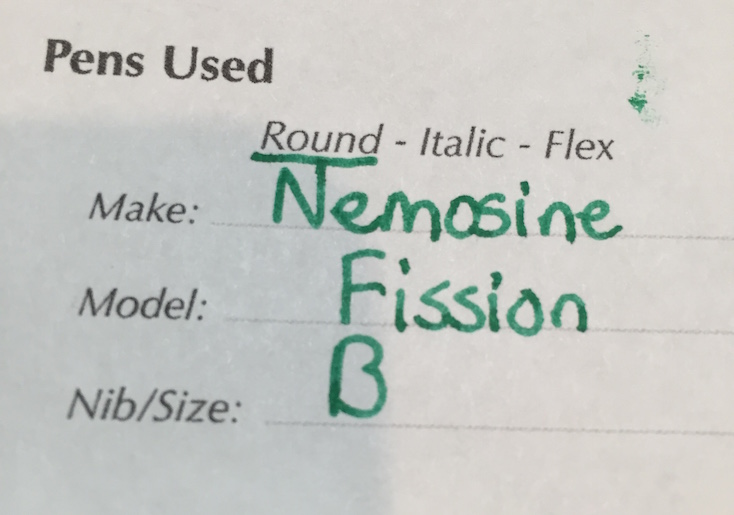 Pens Used
Round - Italic - Flex
Make: Nemosine
Model: Fission
Nib/Size: B